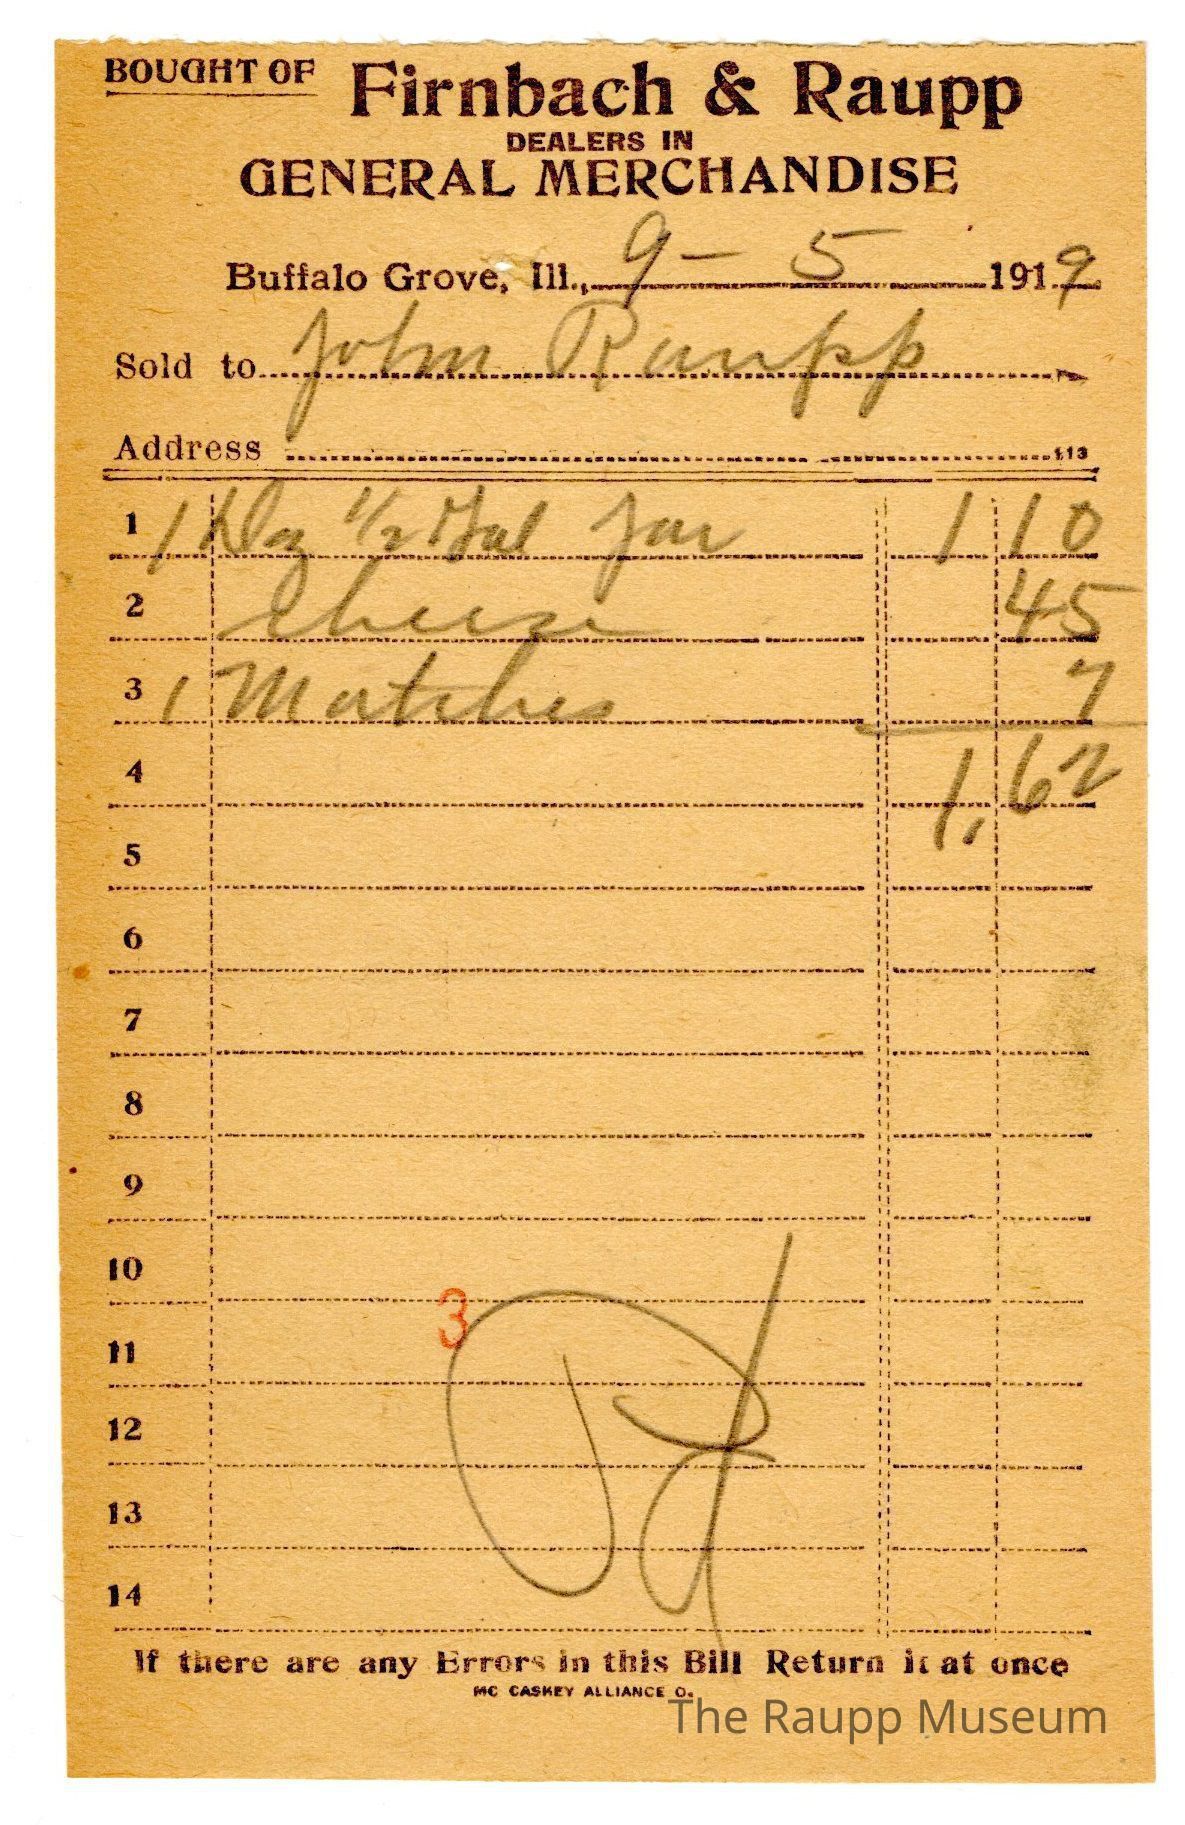 BOUGHT OF Firnbach & Raupp
DEALERS IN
GENERAL MERCHANDISE
Buffalo Grove, Ill., 9 - 5 1919
Sold to John Raupp
Address 113
1 1 Dz 1/2 Gal Jar 1 10
2 Cheese 45
3 1 Matches 7
4 1.62
5
6
7
8
9
10
3
11
12
13
14
If there are any Errors in this Bill Return it at once
MC CASKEY ALLIANCE O.
The Raupp Museum